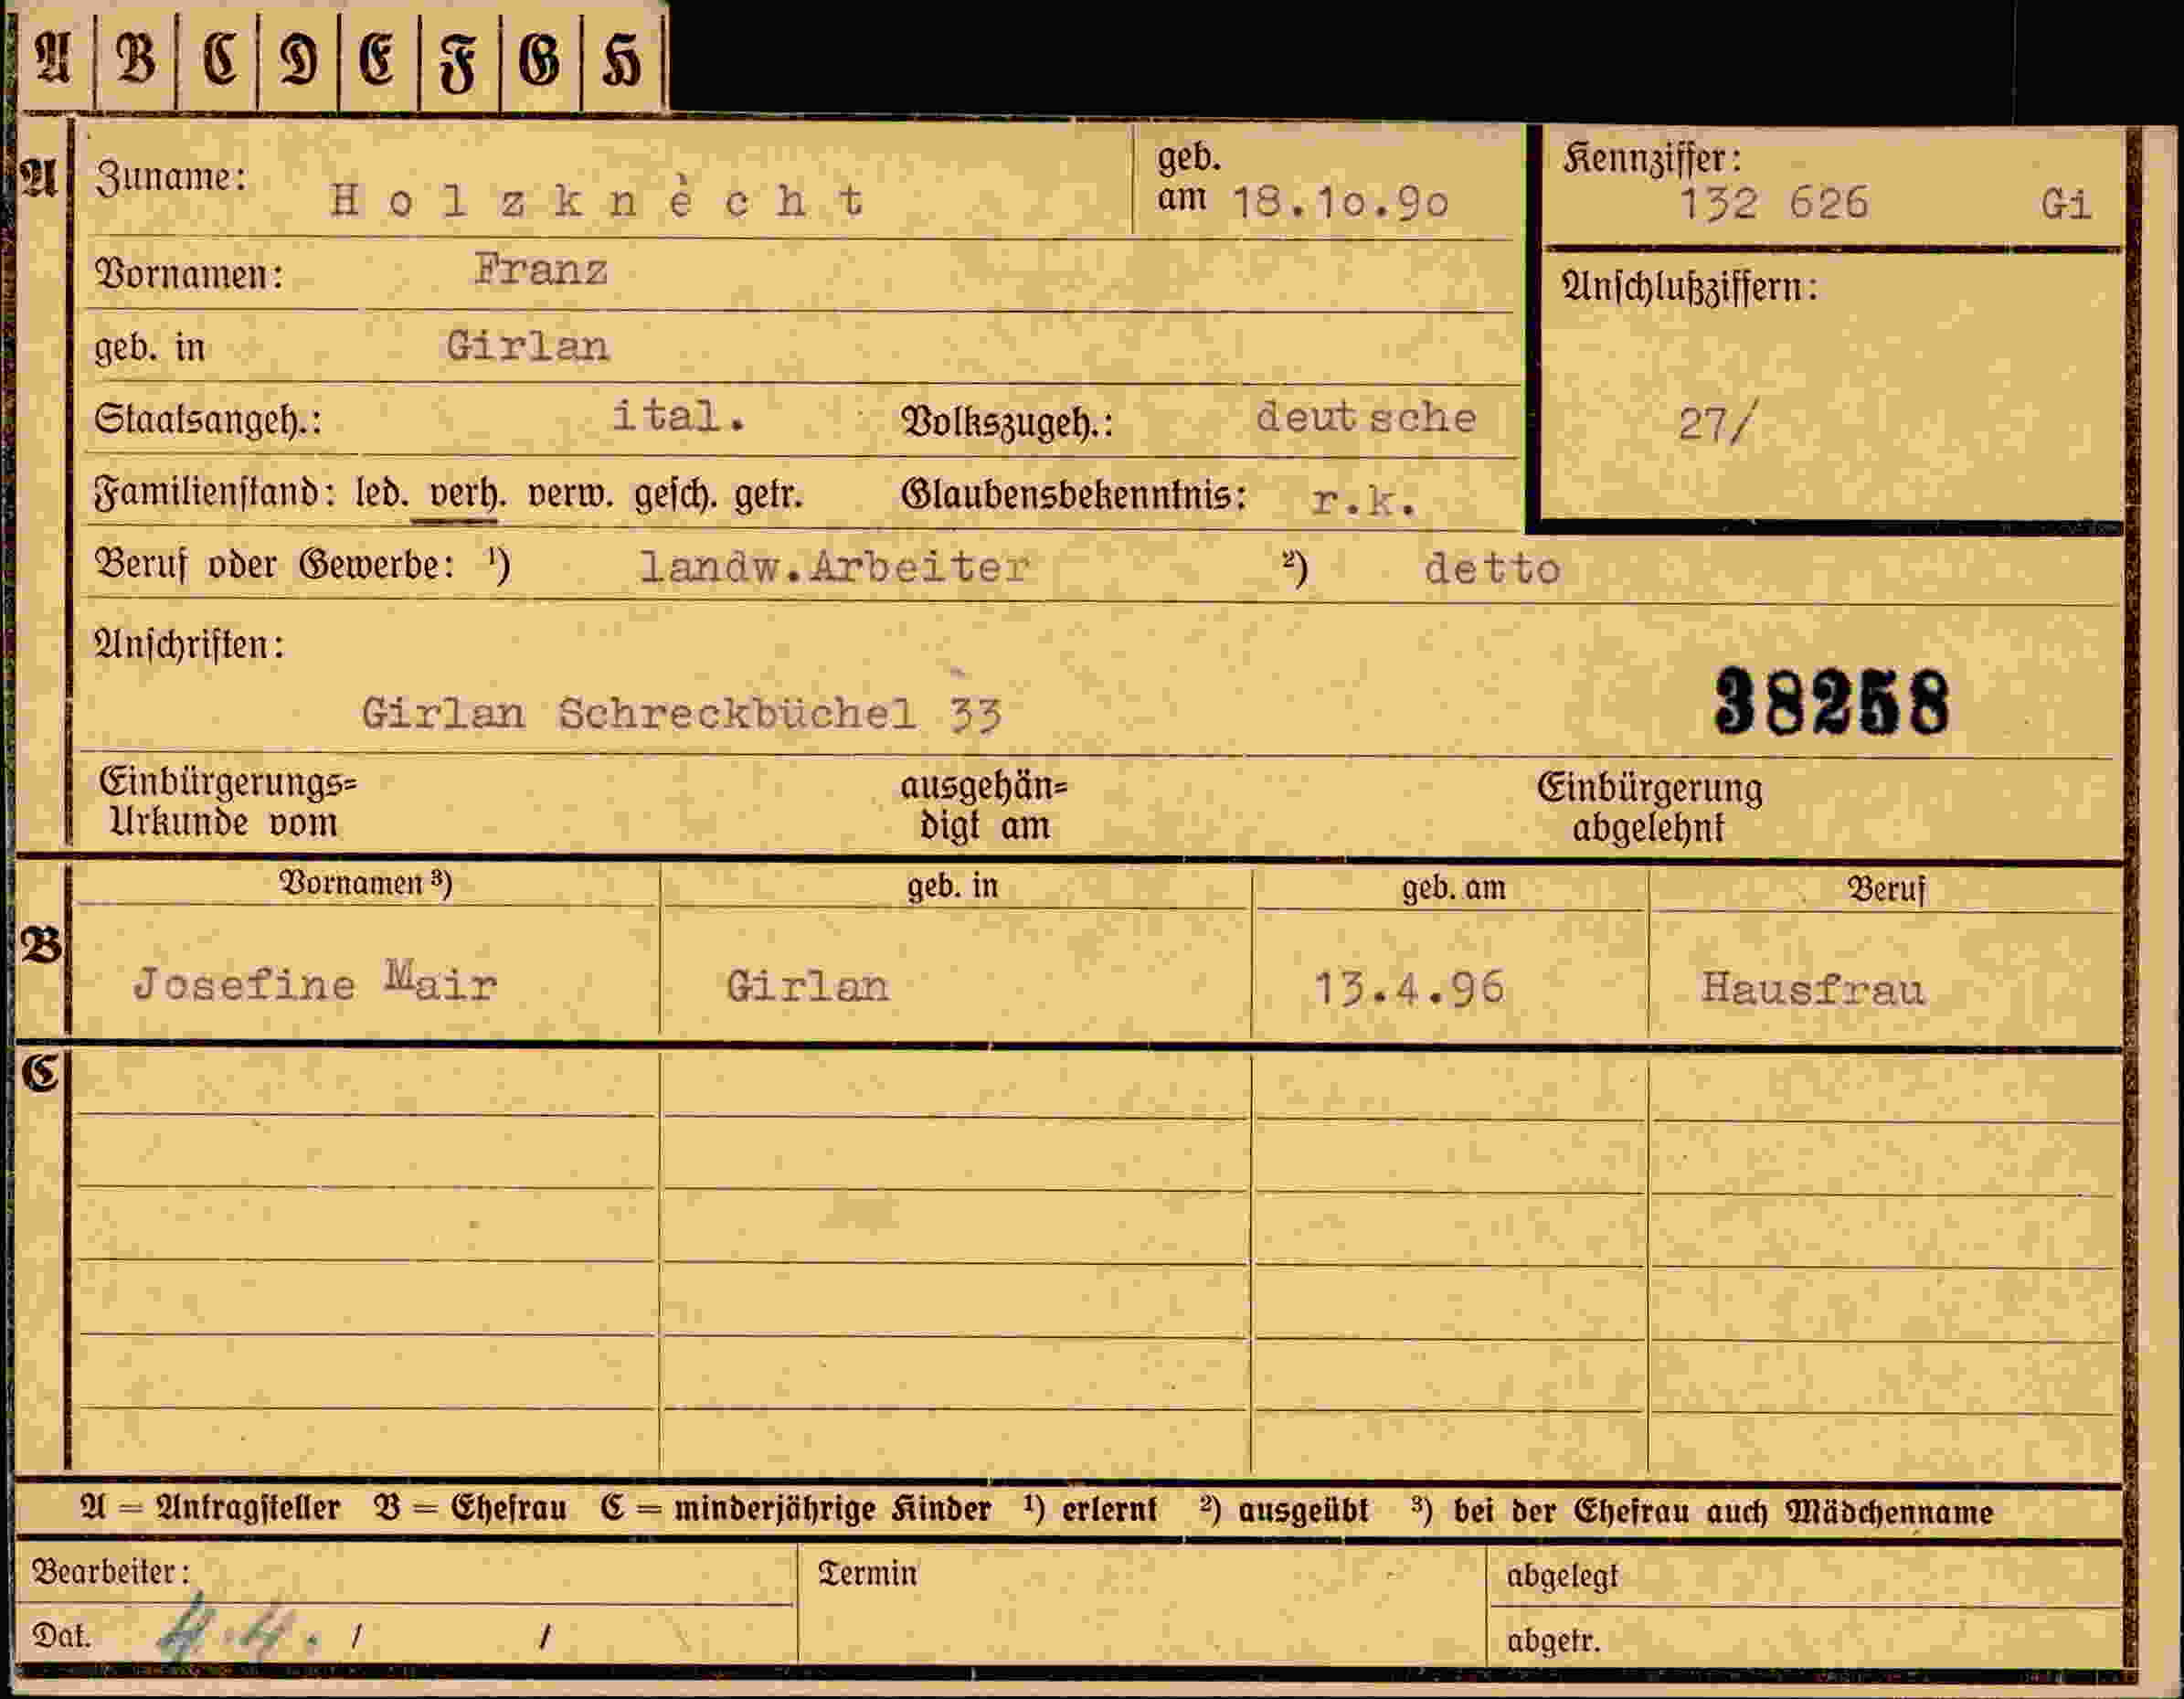 A B C D E F G H
A Zuname: Holzknècht geb. am 18.10.90 Kennziffer: 132 626 Gi
Vornamen: Franz Anschlußziffern:
geb. in Girlan
Staatsangeh.: ital. Volkszugeh.: deutsche 27/
Familienstand: led. verh. verw. gesch. getr. Glaubensbekenntnis: r.k.
Beruf oder Gewerbe: ¹) landw.Arbeiter ²) detto
Anschriften:
Girlan Schreckbüchel 33 38258
Einbürgerungs=
Urkunde vom
ausgehän=
digt am
Einbürgerung
abgelehnt
B Vornamen ³) geb. in geb. am Beruf
Josefine Mair Girlan 13.4.96 Hausfrau
C
A = Antragsteller B = Ehefrau C = minderjährige Kinder ¹) erlernt ²) ausgeübt ³) bei der Ehefrau auch Mädchenname
Bearbeiter: Termin abgelegt
Dat. 4.4. / / abgetr.